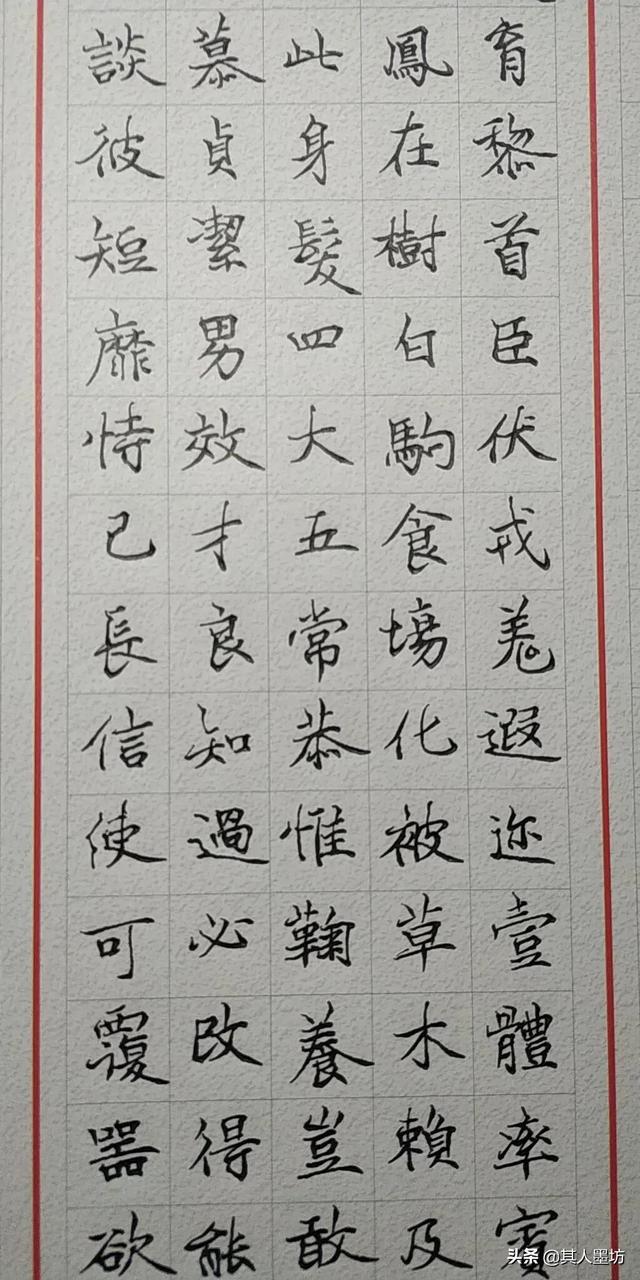 育黎首臣伏戎羌遐迩壹體率賓
鳳在樹白駒食場化被草木賴及
此身髮四大五常恭惟鞠養豈敢
慕貞潔男效才良知過必改得能
談彼短靡恃己長信使可覆器欲
头条 @其人墨坊